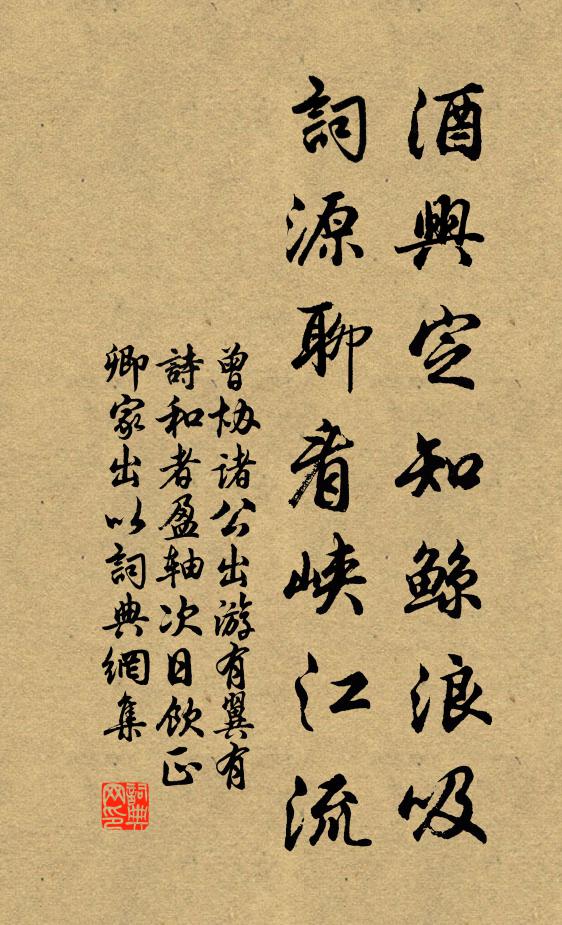 酒興定知鲸浪吸
詞源聊看峽江流
曾协諸公出游有翼有
詩和者盈轴次日飲正
卿家出以詞典網集
詞典
网印